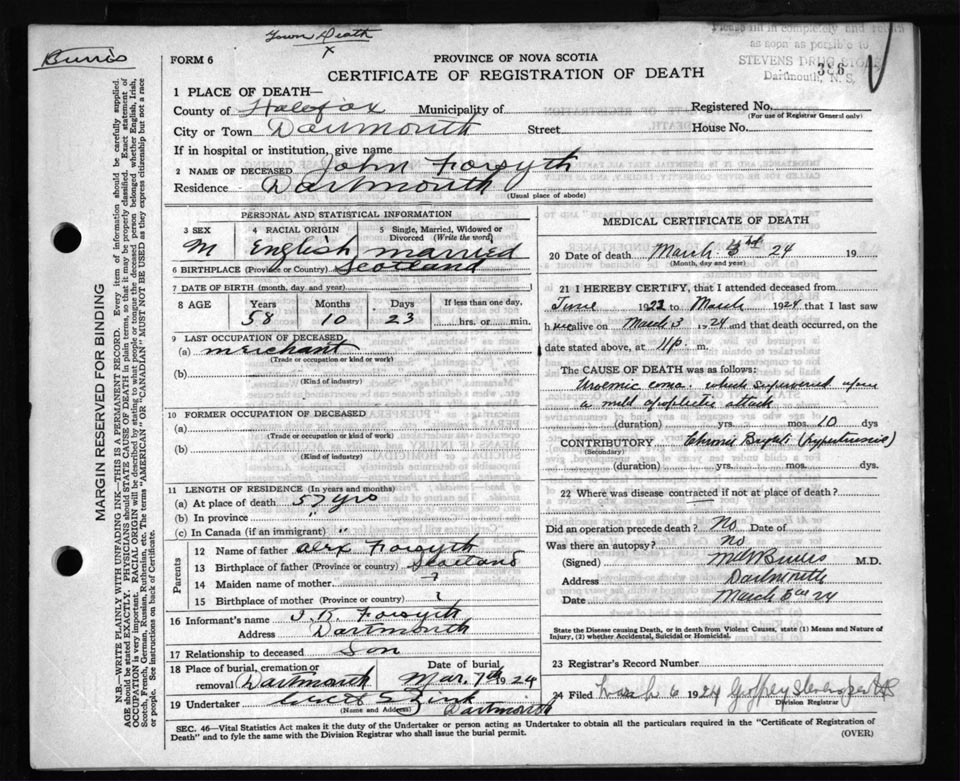 Town Death
x
Burris
Please fill in completely and return
as soon as possible to
STEVENS DRUG STORE
Dartmouth, N. S.
386
FORM 6
PROVINCE OF NOVA SCOTIA
CERTIFICATE OF REGISTRATION OF DEATH
1 PLACE OF DEATH—
County of Halifax Municipality of Registered No.
(For use of Registrar General only)
City or Town Dartmouth Street House No.
If in hospital or institution, give name
2 NAME OF DECEASED John Forsyth
Residence Dartmouth
(Usual place of abode)
PERSONAL AND STATISTICAL INFORMATION
3 SEX 4 RACIAL ORIGIN 5 Single, Married, Widowed or Divorced (Write the word)
M English married
6 BIRTHPLACE (Province or Country) Scotland
7 DATE OF BIRTH (month, day and year)
8 AGE Years Months Days If less than one day,
58 10 23 hrs. or min.
9 LAST OCCUPATION OF DECEASED
(a) merchant
(Trade or occupation or kind or work)
(b)
(Kind of industry)
10 FORMER OCCUPATION OF DECEASED
(a)
(Trade or occupation or kind of work)
(b)
(Kind of industry)
11 LENGTH OF RESIDENCE (In years and months)
(a) At place of death 57 yrs
(b) In province "
(c) In Canada (if an immigrant) "
Parents
12 Name of father Alex Forsyth
13 Birthplace of father (Province or country) Scotland
14 Maiden name of mother ?
15 Birthplace of mother (Province or country) ?
16 Informant's name Forsyth
Address Dartmouth
17 Relationship to deceased Son
18 Place of burial, cremation or Date of burial
removal Dartmouth Mar. 7th 1924
19 Undertaker Zink Dartmouth
(Name and Address)
MEDICAL CERTIFICATE OF DEATH
20 Date of death March 3rd 24 19
(Month, day and year)
21 I HEREBY CERTIFY, that I attended deceased from
June 1923 to March 1924 that I last saw
h alive on March 3 1924 and that death occurred, on
date stated above, at 11 p. m.
The CAUSE OF DEATH was as follows:
Uraemic coma which supervened upon
a mild apoplectic attack
(duration) yrs. mos. 10 dys
CONTRIBUTORY Chronic Brights
(Secondary)
(duration) yrs. mos. dys.
22 Where was disease contracted if not at place of death?
Did an operation precede death? No Date of
Was there an autopsy? No
(Signed) Burris M.D.
Address Dartmouth
Date March 5th 24
State the Disease causing Death, or in death from Violent Causes, state (1) Means and Nature of
Injury, (2) whether Accidental, Suicidal or Homicidal.
23 Registrar's Record Number
24 Filed March 6 1924 Geoffrey Stevens
Division Registrar
SEC. 46—Vital Statistics Act makes it the duty of the Undertaker or person acting as Undertaker to obtain all the particulars required in the "Certificate of Registration of
Death" and to fyle the same with the Division Registrar who shall issue the burial permit.
(OVER)
MARGIN RESERVED FOR BINDING
N.B.—WRITE PLAINLY WITH UNFADING INK—THIS IS A PERMANENT RECORD. Every item of information should be carefully supplied.
AGE should be stated EXACTLY. PHYSICIANS should STATE CAUSE OF DEATH in plain terms, so that it may be properly classified. Exact statement of
OCCUPATION is very important. RACIAL ORIGIN will be described by stating to what people or tongue the deceased person belonged whether English, Irish,
Scotch, French, German, Russian, Ruthenian, etc. The terms "AMERICAN" or "CANADIAN" MUST NOT BE USED as they express citizenship but not a race
or people. See instructions on back of Certificate.